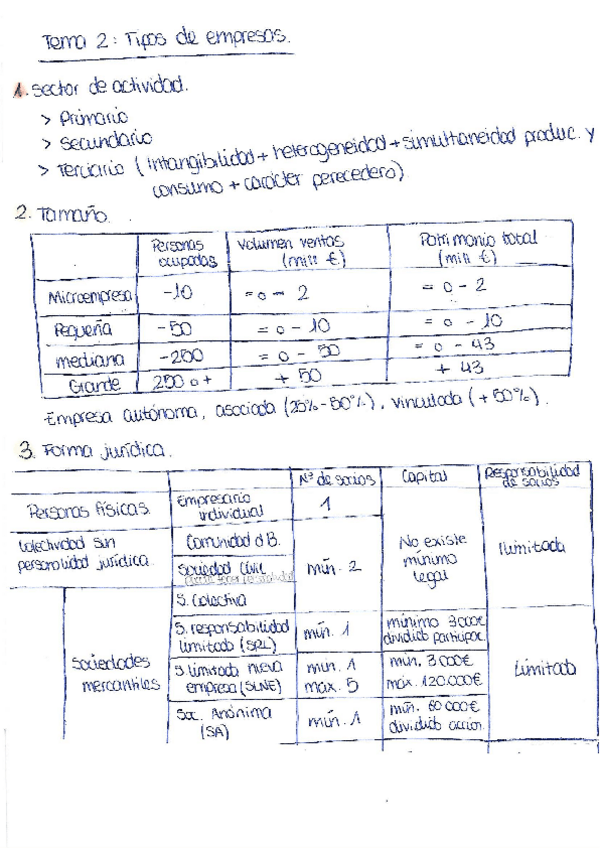 Tema 2: Tipos de empresas.
1. Sector de actividad.
> Primario
> Secundario
> Terciario (Intangibilidad + heterogeneidad + simultaneidad produc. y
consumo + carácter perecedero)
2. Tamaño.
Personas ocupadas Volumen ventas (mill €) Patrimonio total (mill €)
Microempresa -10 = o - 2 = o - 2
Pequeña -50 = o - 10 = o - 10
mediana -250 = o - 50 = o - 43
Grande 250 o + + 50 + 43
Empresa autónoma, asociada (25% - 50%), vinculada (+ 50%).
3. Forma jurídica.
Nº de socios Capital Responsabilidad de socios
Personas físicas. Empresario individual 1
Colectividad sin personalidad jurídica. Comunidad d B.
Sociedad Civil
No existe mínimo legal
Ilimitada
mín. 2
S. Colectiva
Sociedades mercantiles
S. responsabilidad limitada (SRL) mín. 1 mínimo 3000€ dividido particpac.
S. limitada nueva empresa (SLNE) mín. 1 máx. 5 mín. 3000€ máx. 120.000€
Limitada
Soc. Anónima (SA) mín. 1 mín. 60 000€ dividido accion.